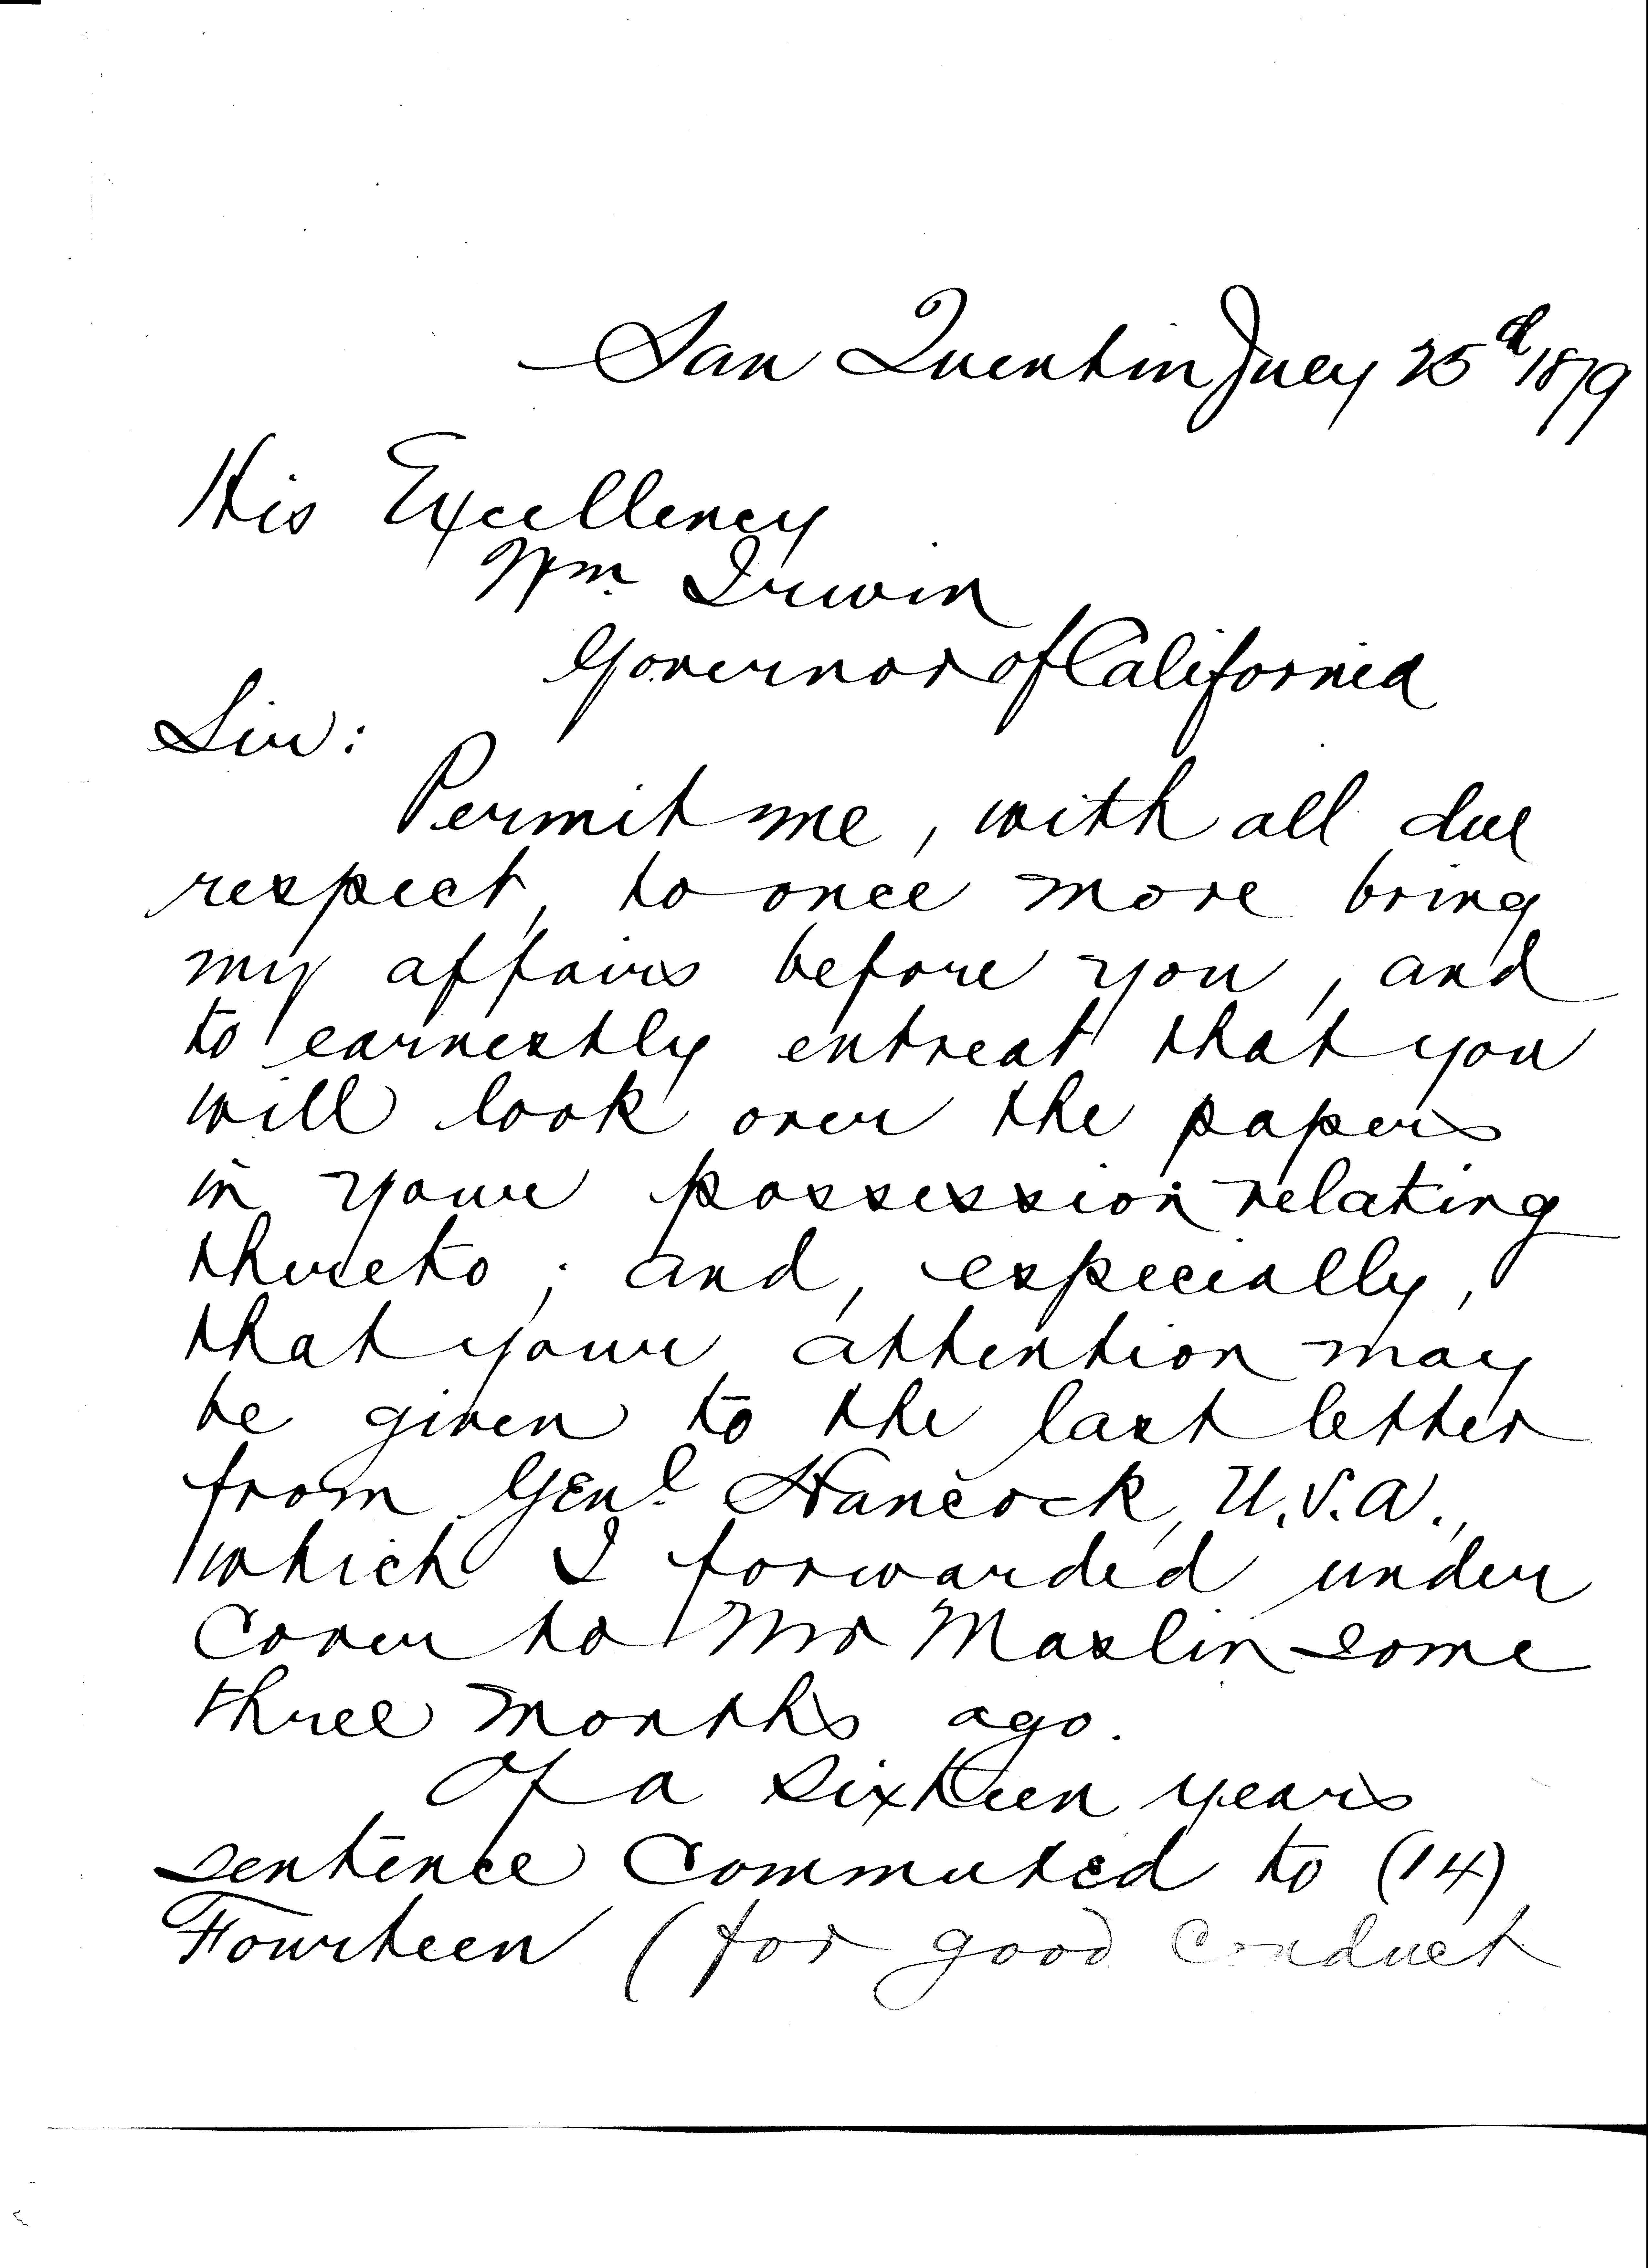 San Quentin July 25th 1879
His Excellency
Wm. Irwin
Governor of California
Sir:
Permit me, with all due
respect, to once more bring
my affairs before you, and
to earnestly entreat that you
will look over the papers
in your possession relating
thereto; and, especially,
that your attention may
be given to the last letter
from Genl. Hancock, U.S.A.,
which I forwarded under
cover to Mr Maslin some
three months ago.
Of a sixteen years
sentence commuted to (14)
Fourteen (for good conduct